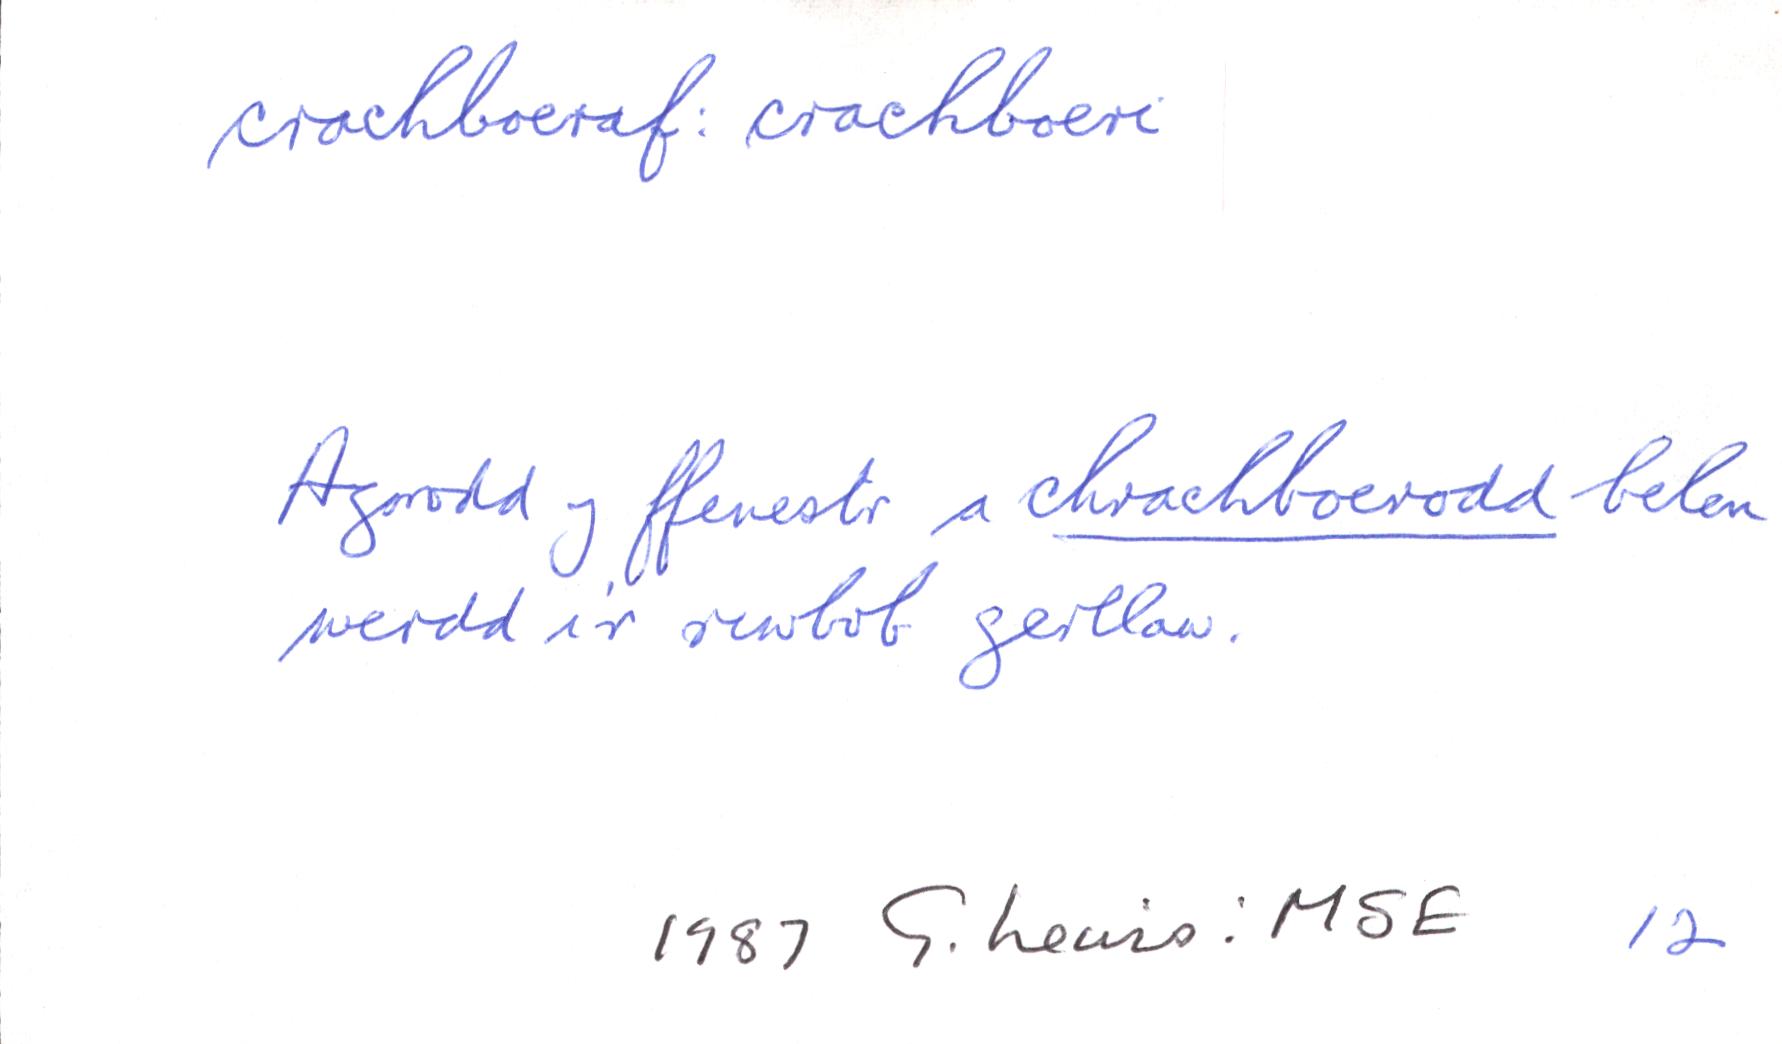 crachboeraf: crachboeri
Agorodd y ffenestr a chrachboerodd belen
werdd i'r rhwbob gerllaw.
1987 G. Lewis: MSE 12